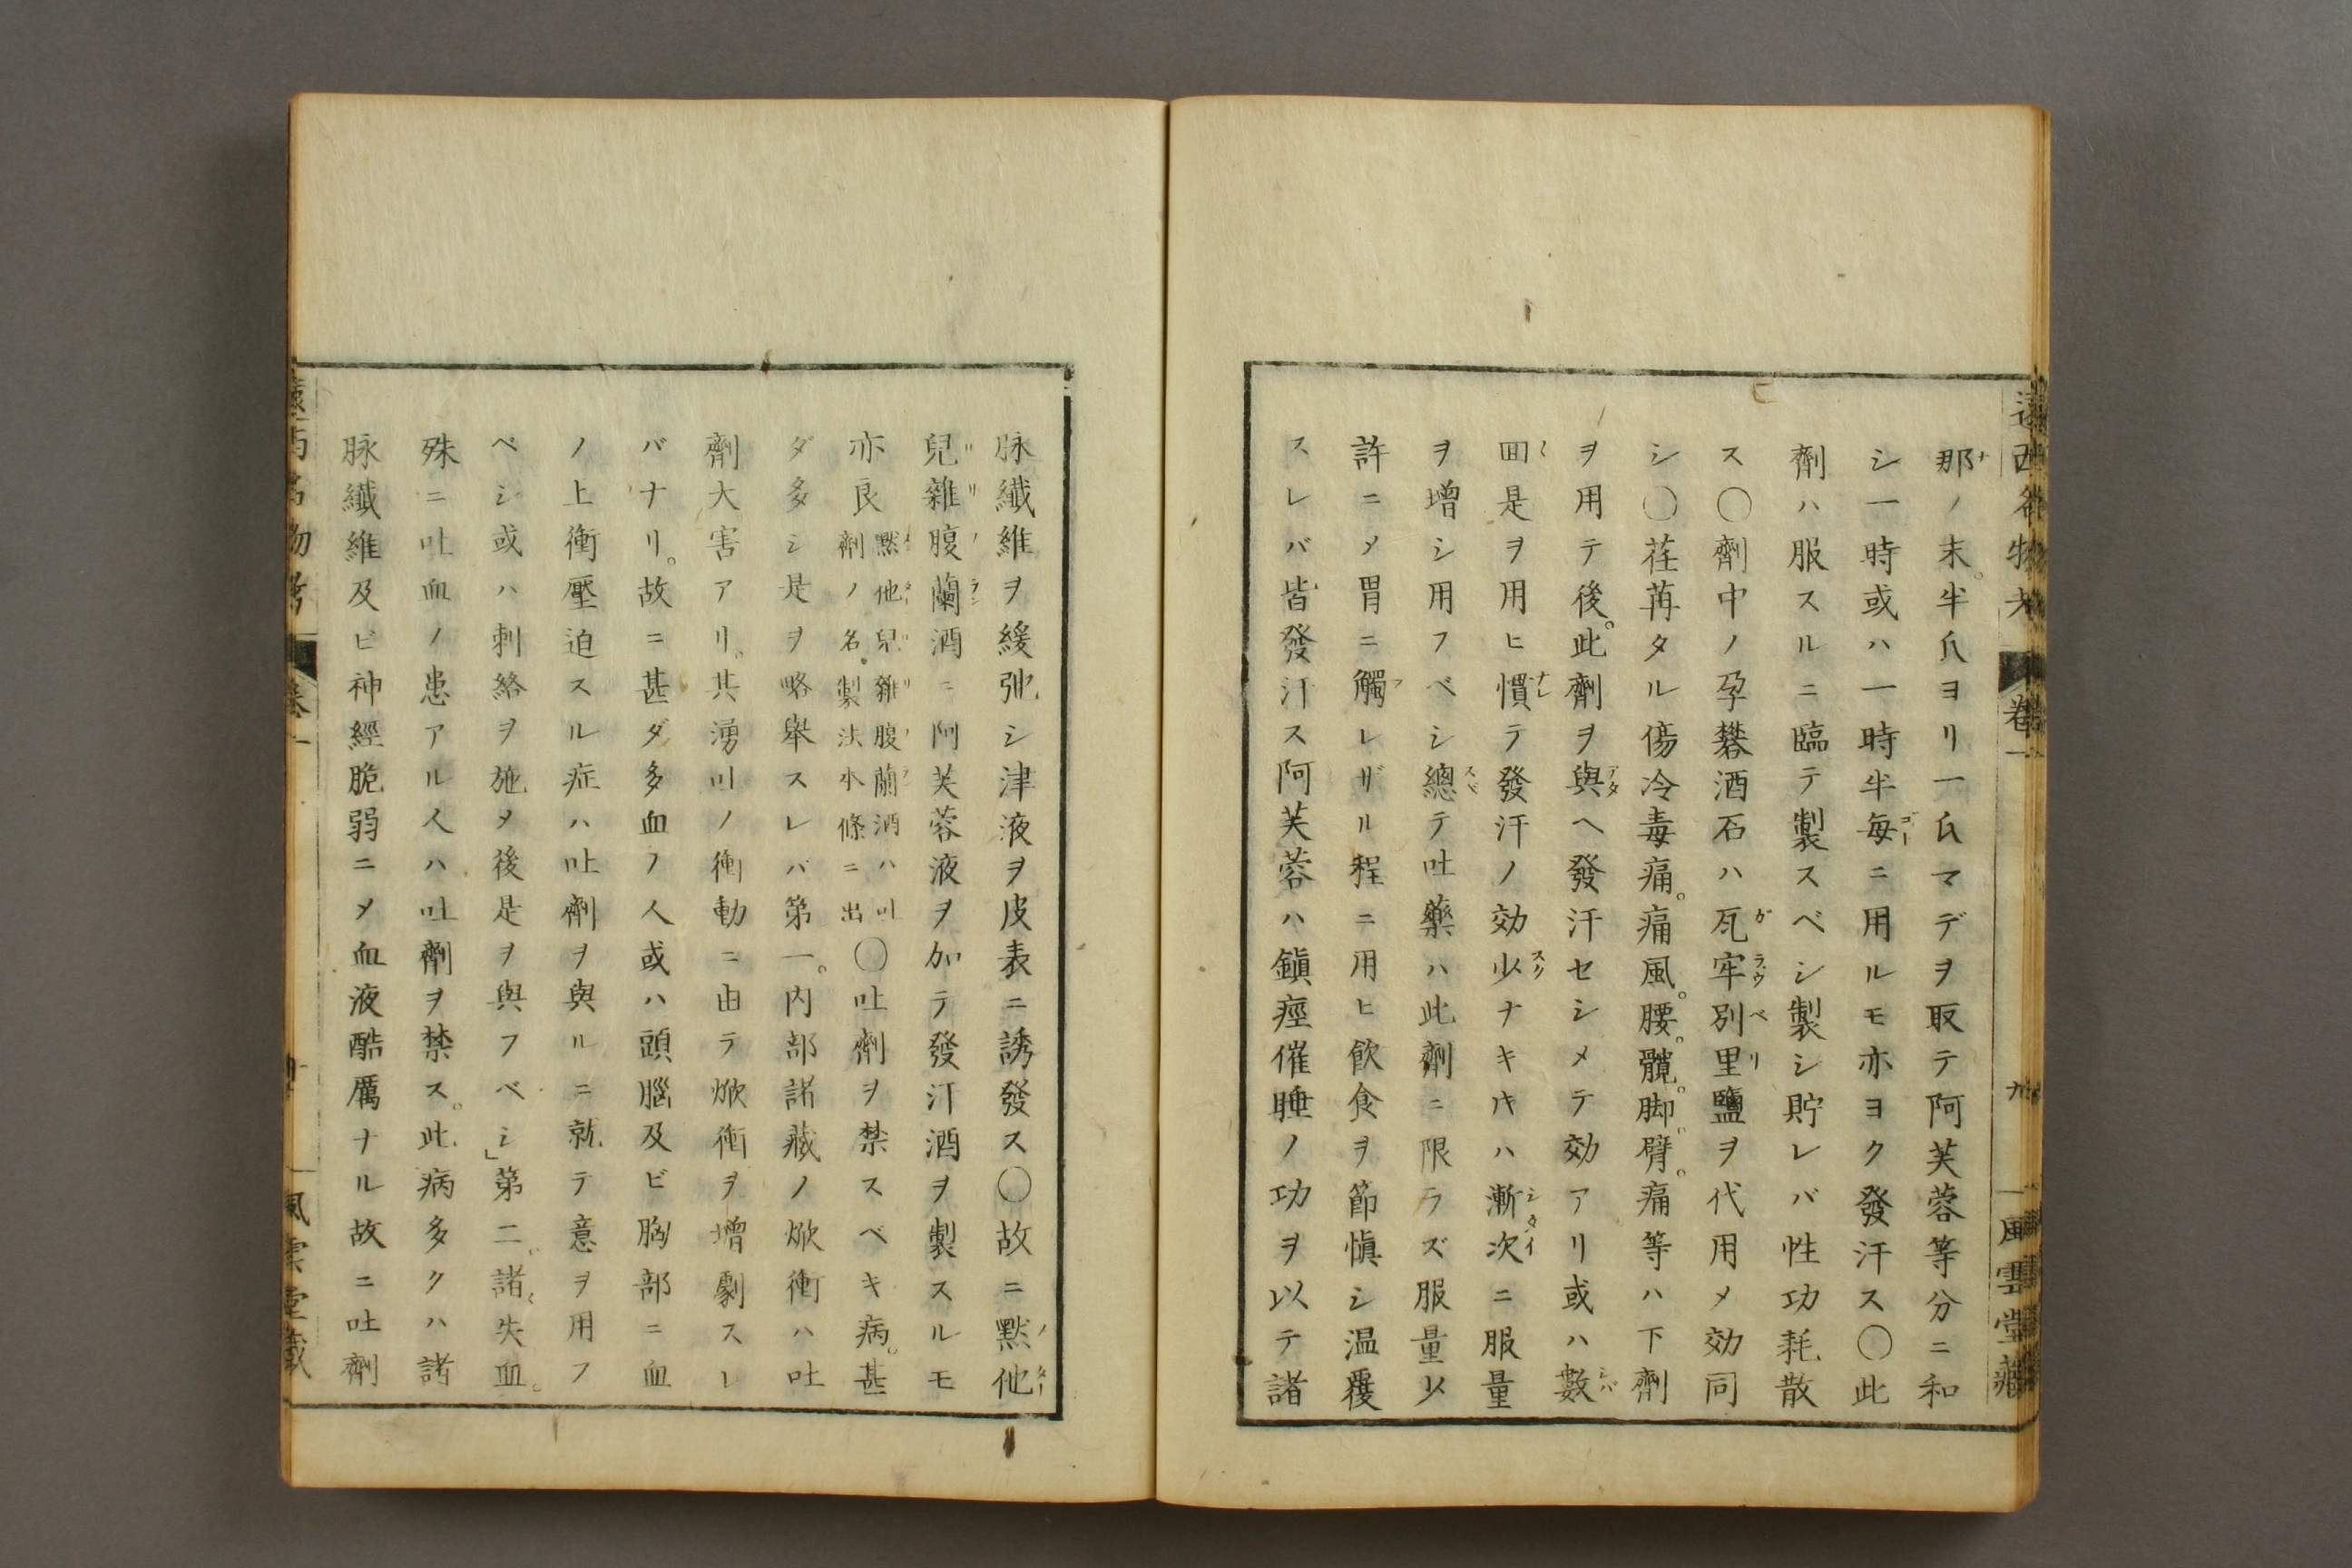 遠西名物考 卷一 九 風雲堂藏
那ノ末。半氏ヨリ一氏マデヲ取テ阿芙蓉等分ニ和
シ一時或ハ一時半每ニ用ルモ亦ヨク發汗ス〇此
劑ハ服スルニ臨テ製スベシ製シ貯レバ性功耗散
ス〇劑中ノ孕礬酒石ハ瓦牢別里鹽ヲ代用メ効同
シ〇荏苒タル傷冷毒痛。痛風。腰。髖。脚。臂。痛等ハ下劑
ヲ用テ後。此劑ヲ與ヘ發汗セシメテ効アリ或ハ數
囬是ヲ用ヒ慣テ發汗ノ効少ナキキハ漸次ニ服量
ヲ增シ用フベシ總テ吐藥ハ此劑ニ限ラズ服量以
許ニメ胃ニ觸レザル程ニ用ヒ飲食ヲ節愼シ温覆
スレバ皆發汗ス阿芙蓉ハ鎭痙催睡ノ功ヲ以テ諸
脉纖維ヲ緩弛シ津液ヲ皮表ニ誘發ス〇故ニ黙他
兒雜腹蘭酒ニ阿芙蓉液ヲ加テ發汗酒ヲ製スルモ
亦良黙他兒雜腹蘭酒ハ吐劑ノ名製法本條ニ出〇吐劑ヲ禁スベキ病。甚
ダ多シ是ヲ略舉スレバ第一。内部諸藏ノ焮衝ハ吐
劑大害アリ。其湧吐ノ衝動ニ由テ焮衝ヲ增劇スレ
バナリ。故ニ甚ダ多血ノ人或ハ頭腦及ビ胸部ニ血
ノ上衝壓迫スル症ハ吐劑ヲ與ルニ就テ意ヲ用フ
ベシ或ハ刺絡ヲ施メ後是ヲ與フベシ」第二。諸失血。
殊ニ吐血ノ患アル人ハ吐劑ヲ禁ス。此病多クハ諸
脉纖維及ビ神經脆弱ニメ血液酷厲ナル故ニ吐劑
卷一 風雲堂藏